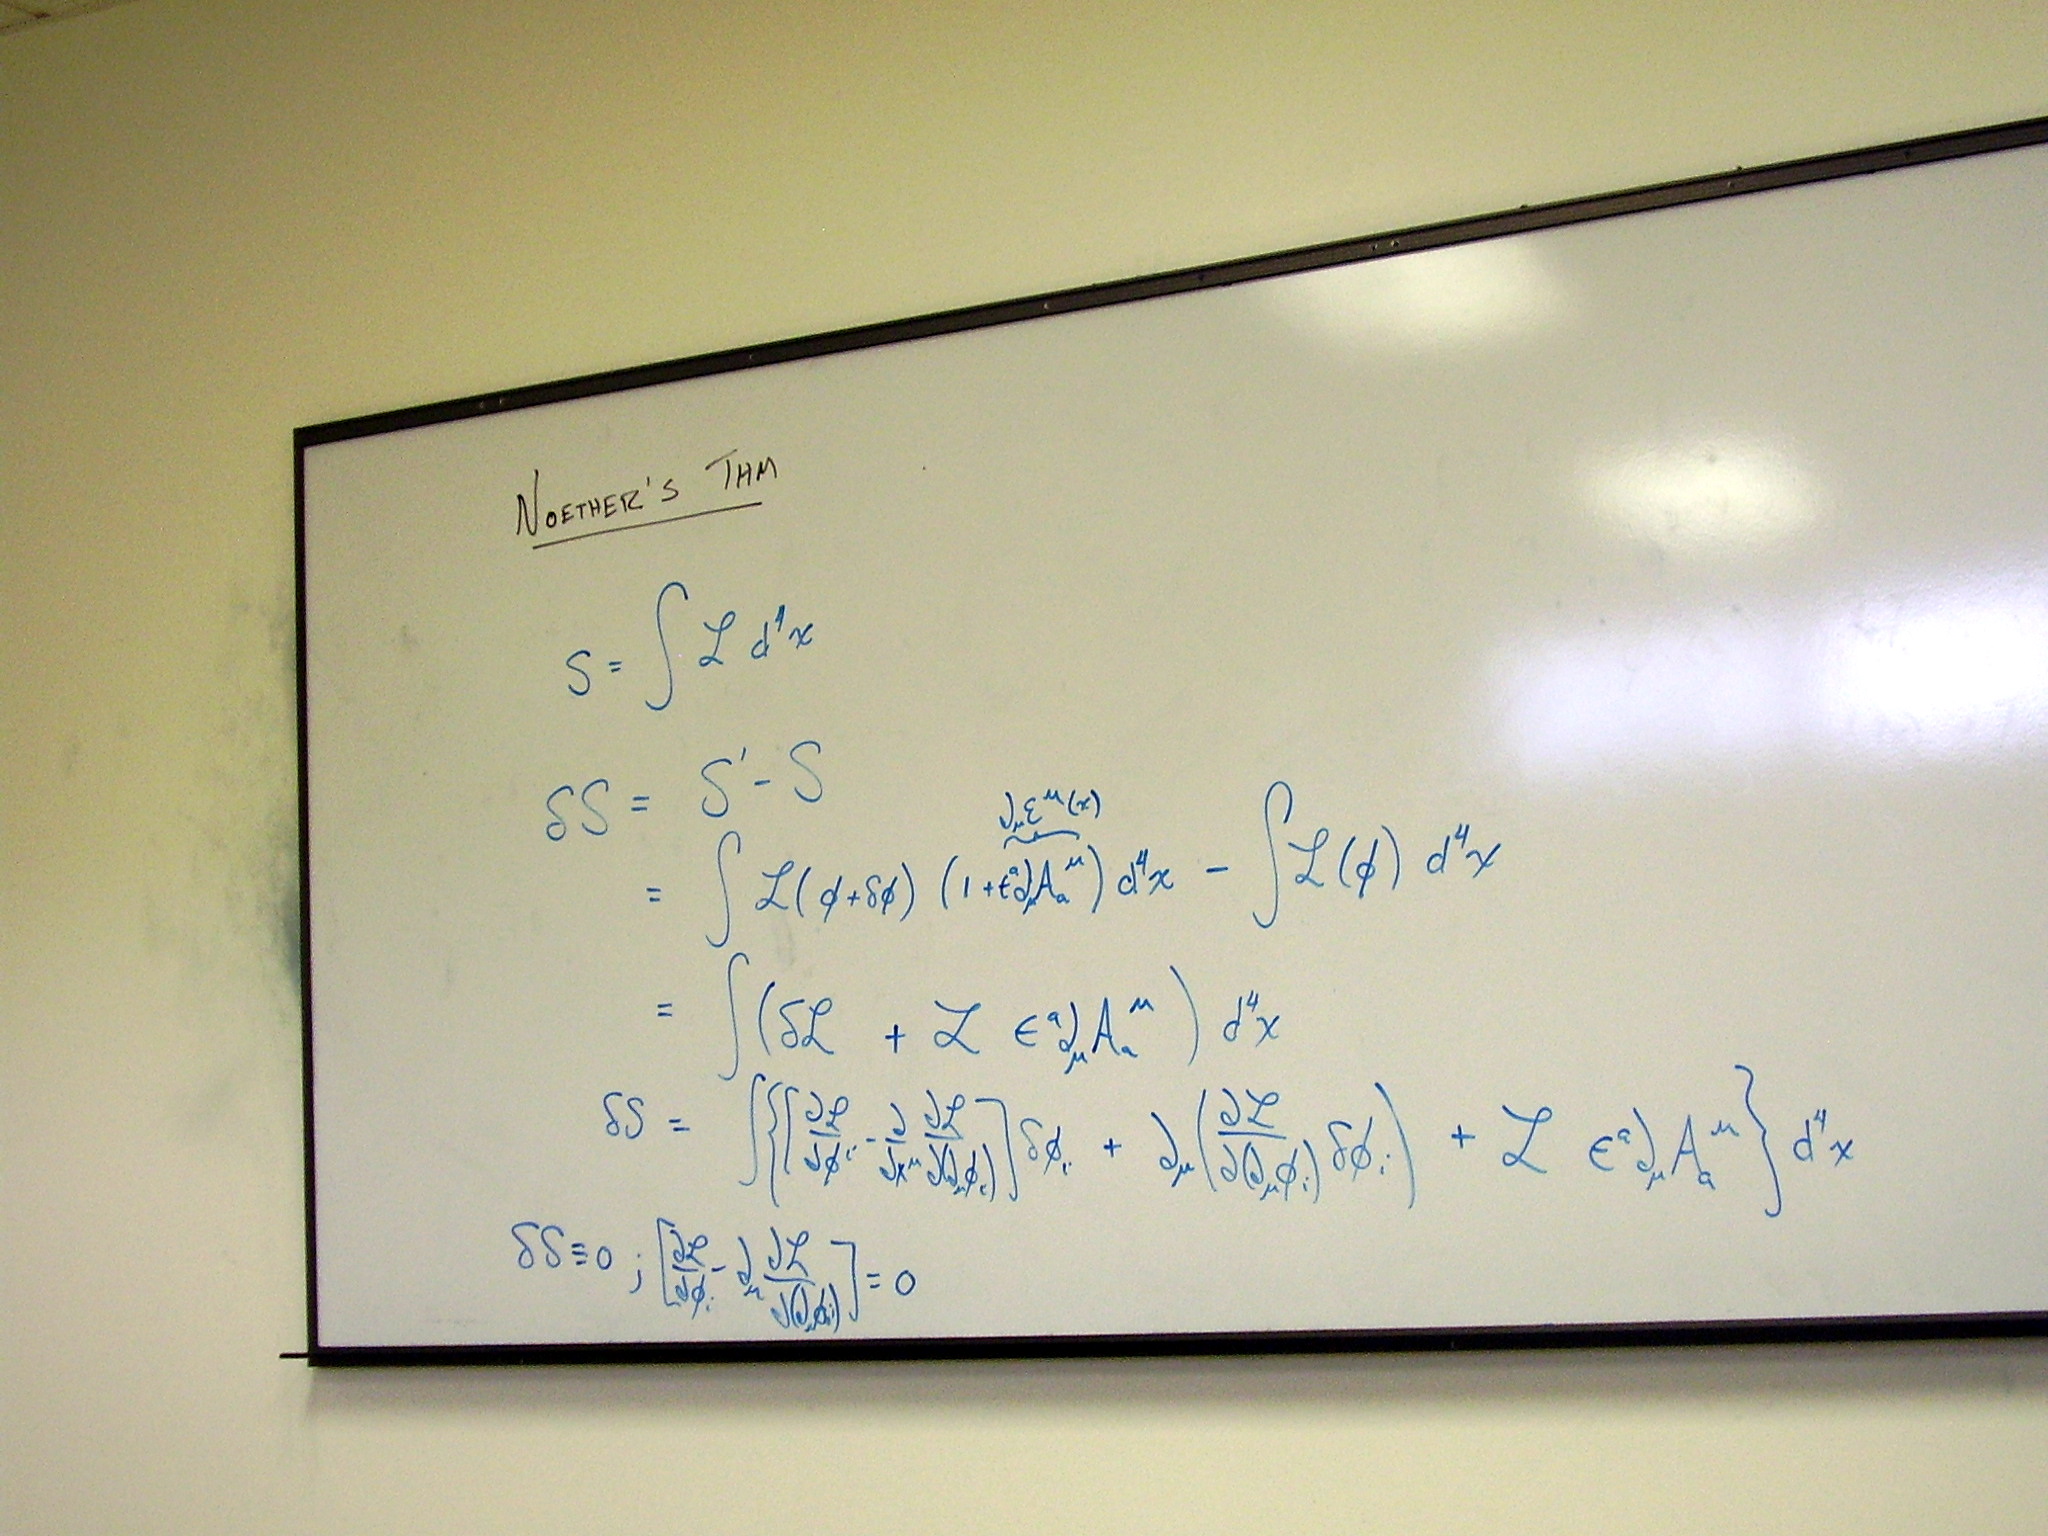 NOETHER'S THM
S = ∫ ℒ d⁴x
δS = S' - S
∂_μ ε^μ(x)
= ∫ ℒ(φ+δφ) (1+ε^a ∂_μ A_a^μ) d⁴x - ∫ ℒ(φ) d⁴x
= ∫ (δℒ + ℒ ε^a ∂_μ A_a^μ) d⁴x
δS = ∫ {[∂ℒ/∂φ_i - ∂/∂x^μ ∂ℒ/∂(∂_μ φ_i)] δφ_i + ∂_μ (∂ℒ/∂(∂_μ φ_i) δφ_i) + ℒ ε^a ∂_μ A_a^μ} d⁴x
δS ≡ 0 ; [∂ℒ/∂φ_i - ∂_μ ∂ℒ/∂(∂_μ φ_i)] = 0